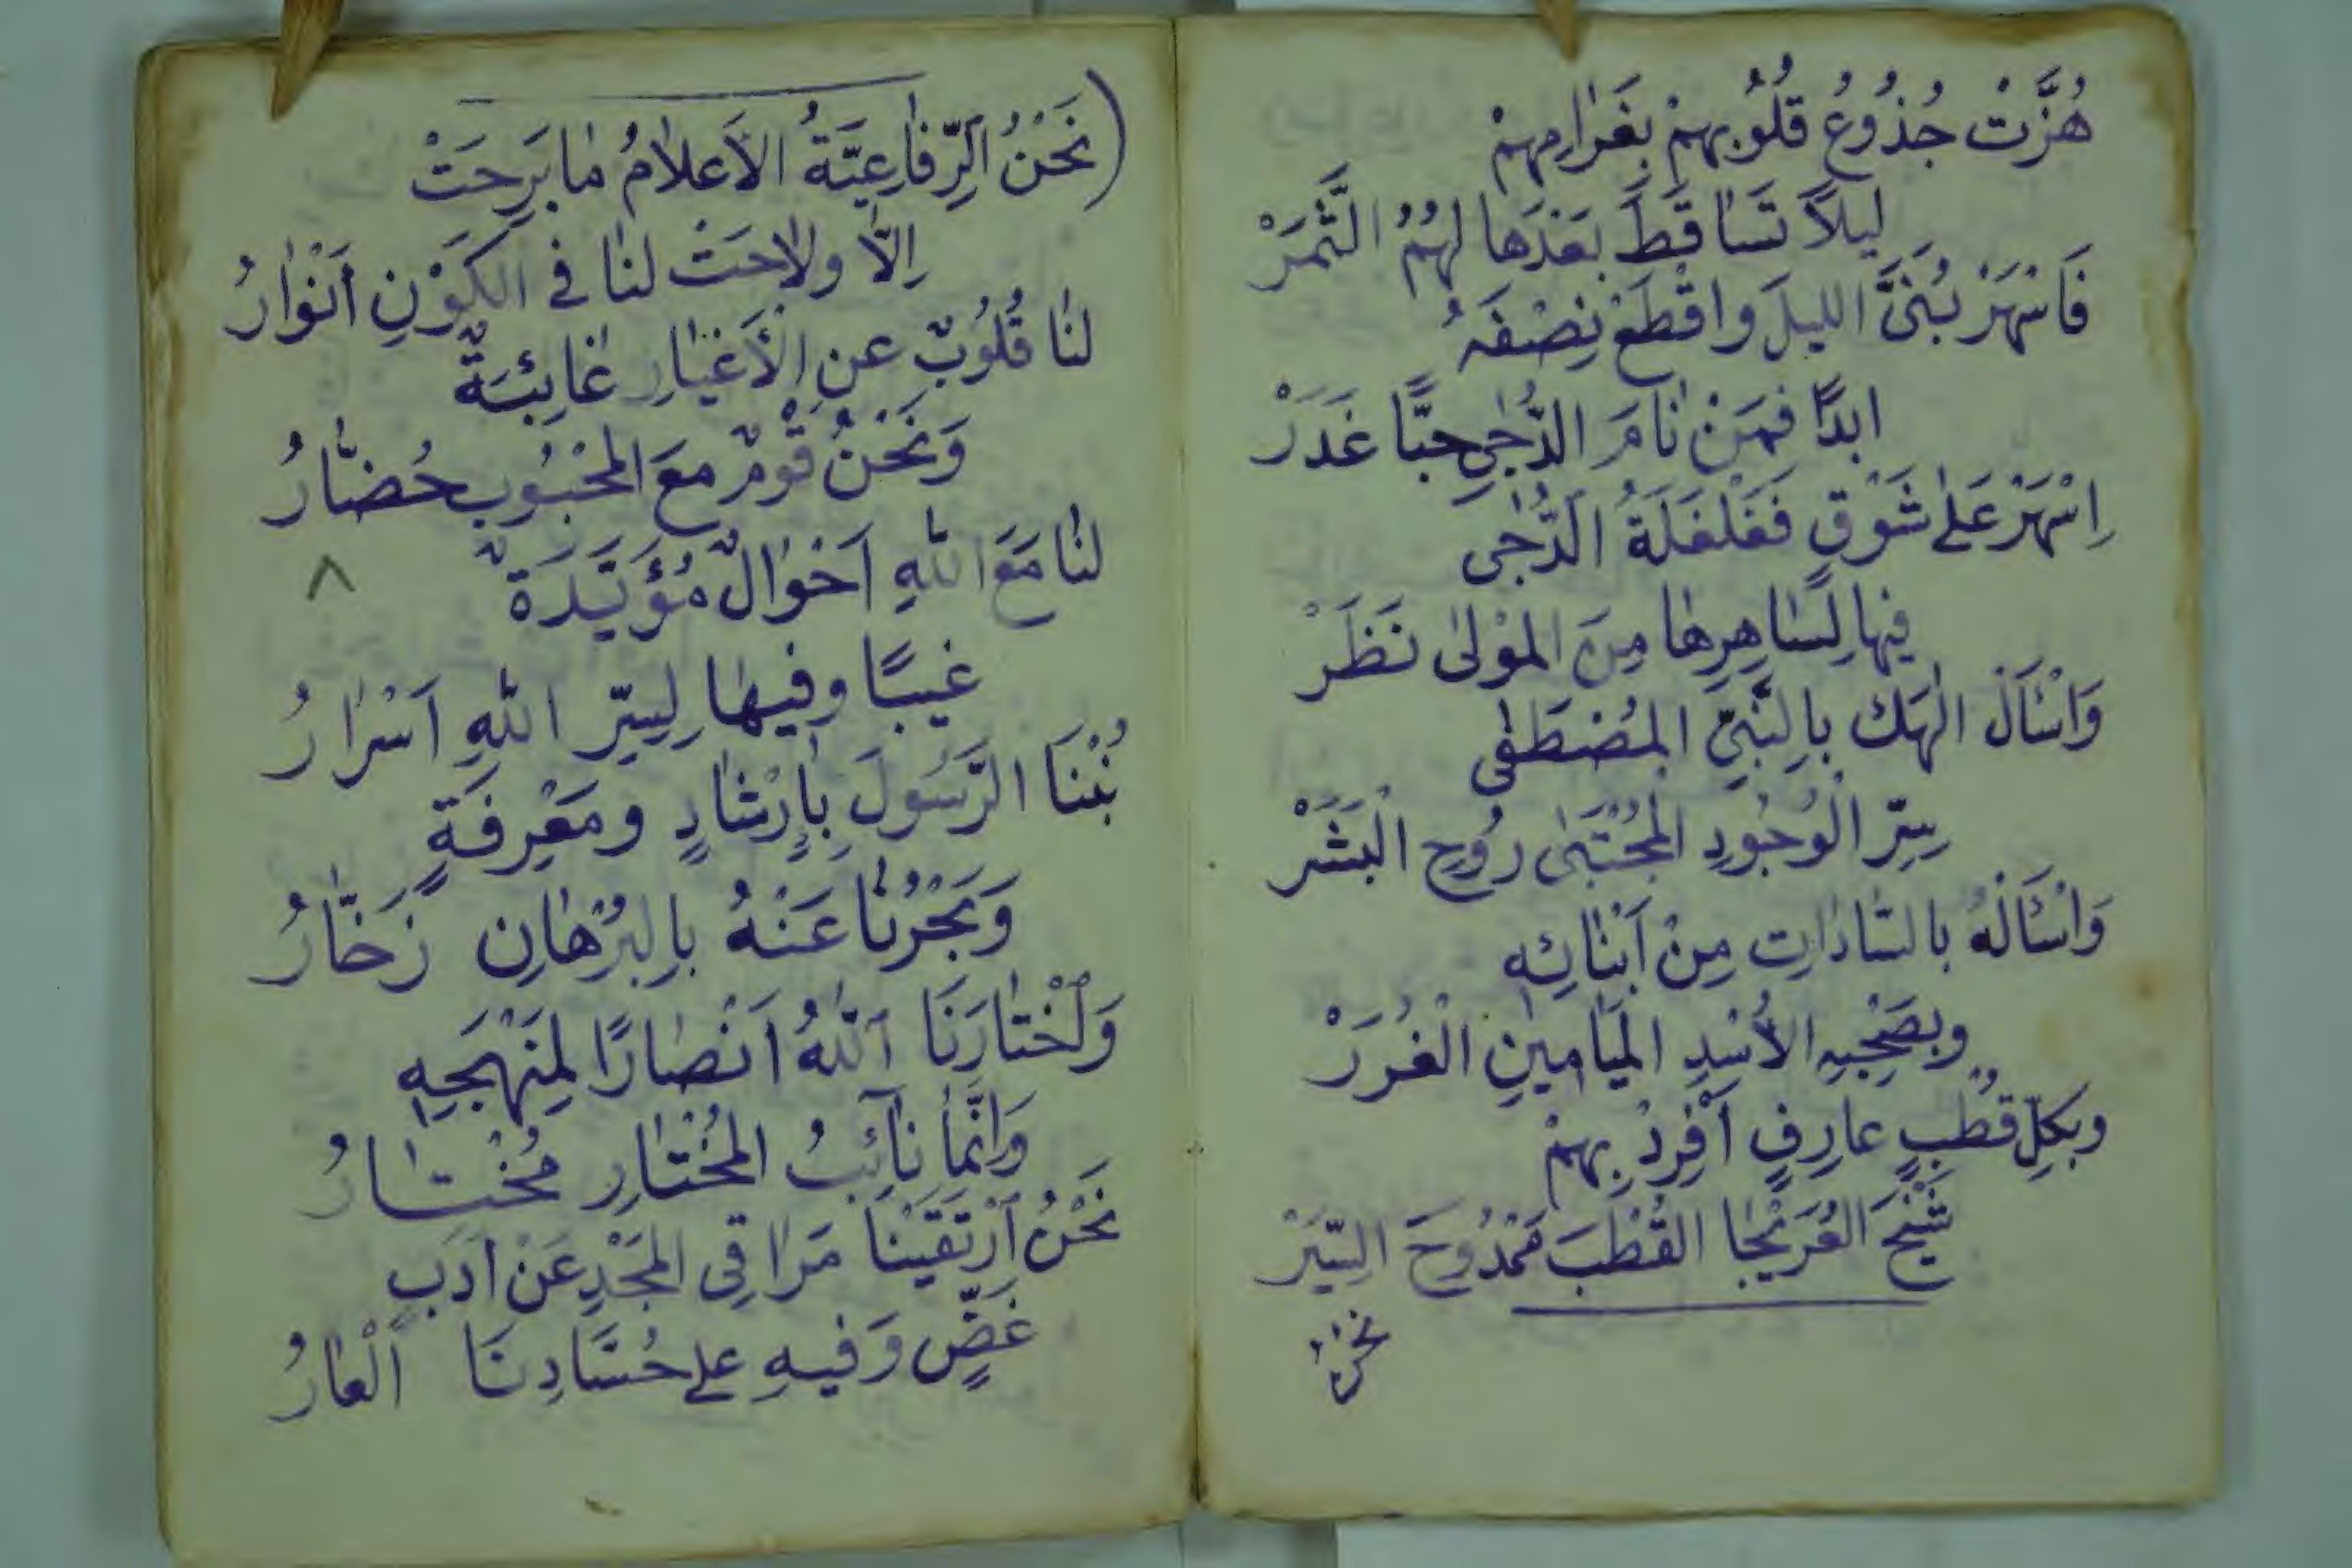 هُزَّتْ جُذُوعُ قُلُوبِهِمْ بِغَرَامِهِمْ
ليلاً تَسَاقَطَ بَعْدَهَا لهُمُ الثَّمَرْ
فَاسْهَرْ بُنَيَّ الليلَ واقْطَعْ نِصْفَهُ
ابدًا فمَنْ نَامَ الدُّجٰى حبًّا غَدَرْ
اِسْهَرْ عَلٰى شَوْقٍ فَغَلْغَلَةُ الدُّجٰى
فيها لِسَاهِرِهَا مِنَ المَوْلٰى نَظَرْ
وَاسْئَالْ الٰهَك بِالنَّبِيِّ المُصْطَفٰى
سِرِّ الْوُجُودِ المُجْتَبٰى رُوحِ الْبَشَرْ
وَاسْئَالْهُ بالسَّادَاتِ مِنْ اَبْنَائِهِ
وبصَحْبِهِ الأُسْدِ المَيَامينِ الْغُرَرْ
وبكلِّ قُطْبٍ عارِفٍ اَفْرِدْ بِهِمْ
شَيْخَ العُرَيْجَا القُطْبَ مَمْدُوحَ السِّيَرْ
نحْنُ
(نَحْنُ الرِّفَاعِيَّةُ الأَعلامُ مَا بَرِحَتْ
اِلاَّ ولاَحَتْ لنَا في الكَوْنِ اَنْوَارُ
لنَا قُلُوبٌ عنِ الأَغْيَارِ غَائِبَةٌ
وَنَحْنُ قَوْمٌ معَ المَحْبُوبِ حُضَّارُ
لنَا مَعَ اللهِ اَحْوَالٌ مُؤَيَّدَةٌ ٨
غيبًا وفيهَا لِسِرِّ اللهِ اَسْرَارُ
نُبْنَا الرَّسُولَ بِاِرْشَادٍ ومَعْرِفَةٍ
وَبَحْرُنَا عَنْهُ بِالبُرْهَانِ زَخَّارُ
وَاخْتَارَنَا اللهُ اَنْصَارًا لِمَنْهَجِهِ
وَانَّمَا نَآئِبُ المُخْتَارِ مُخْتَارُ
نَحْنُ ارْتَقَيْنَا مَرَاقِى المَجْدِ عَنْ اَدَبٍ
غَضٍّ وَفيهِ على حُسَّادِنَا اَلْعَارُ